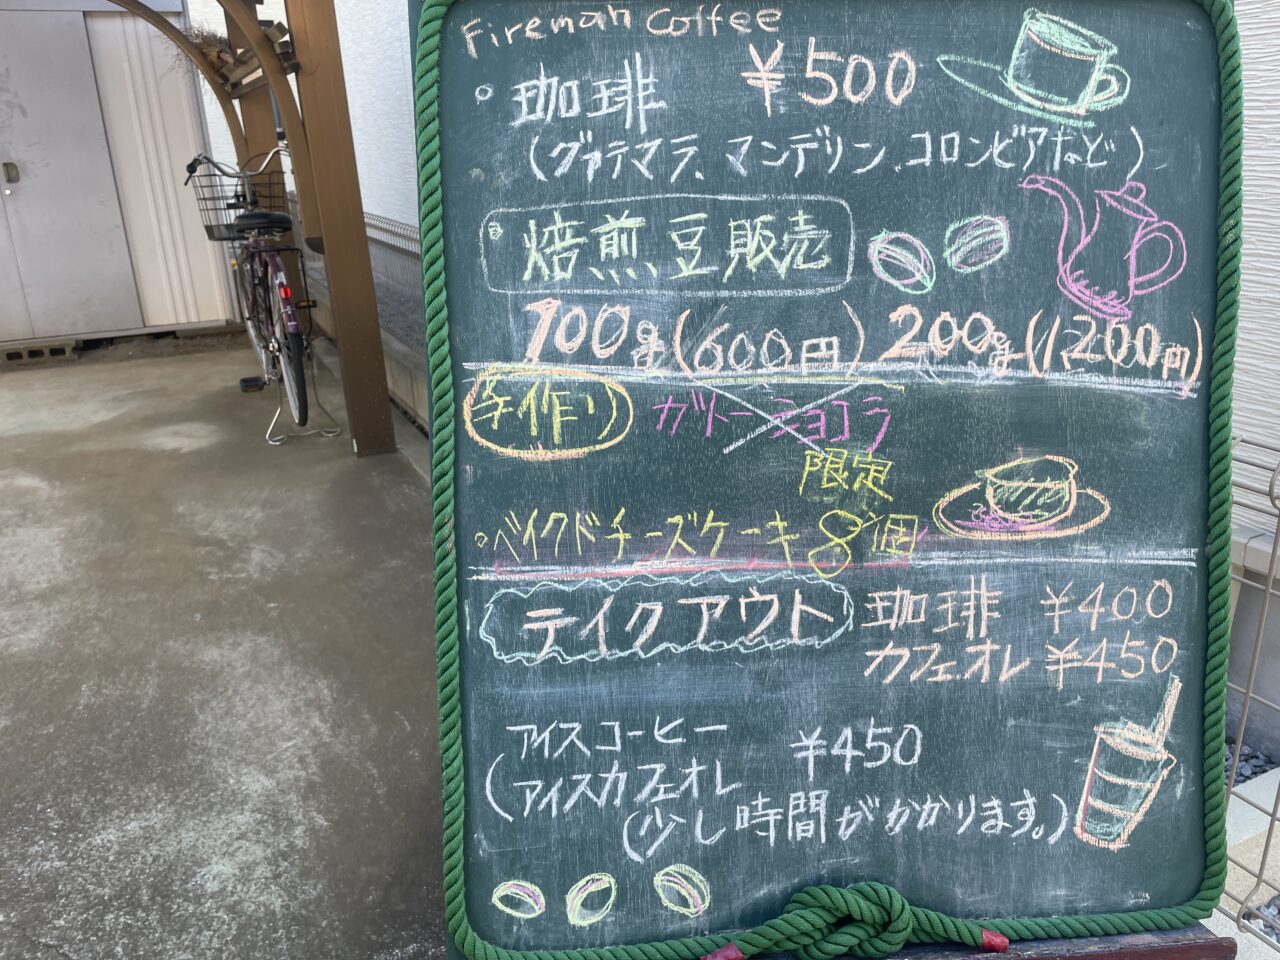 Fireman Coffee
珈琲 ¥500
(グァテマラ、マンデリン、コロンビアなど)
焙煎豆販売
100g(600円) 200g(1,200円)
手作り ガトーショコラ
限定
ベイクドチーズケーキ 8個
テイクアウト 珈琲 ¥400
カフェオレ ¥450
アイスコーヒー ¥450
(アイスカフェオレ
(少し時間がかかります。)